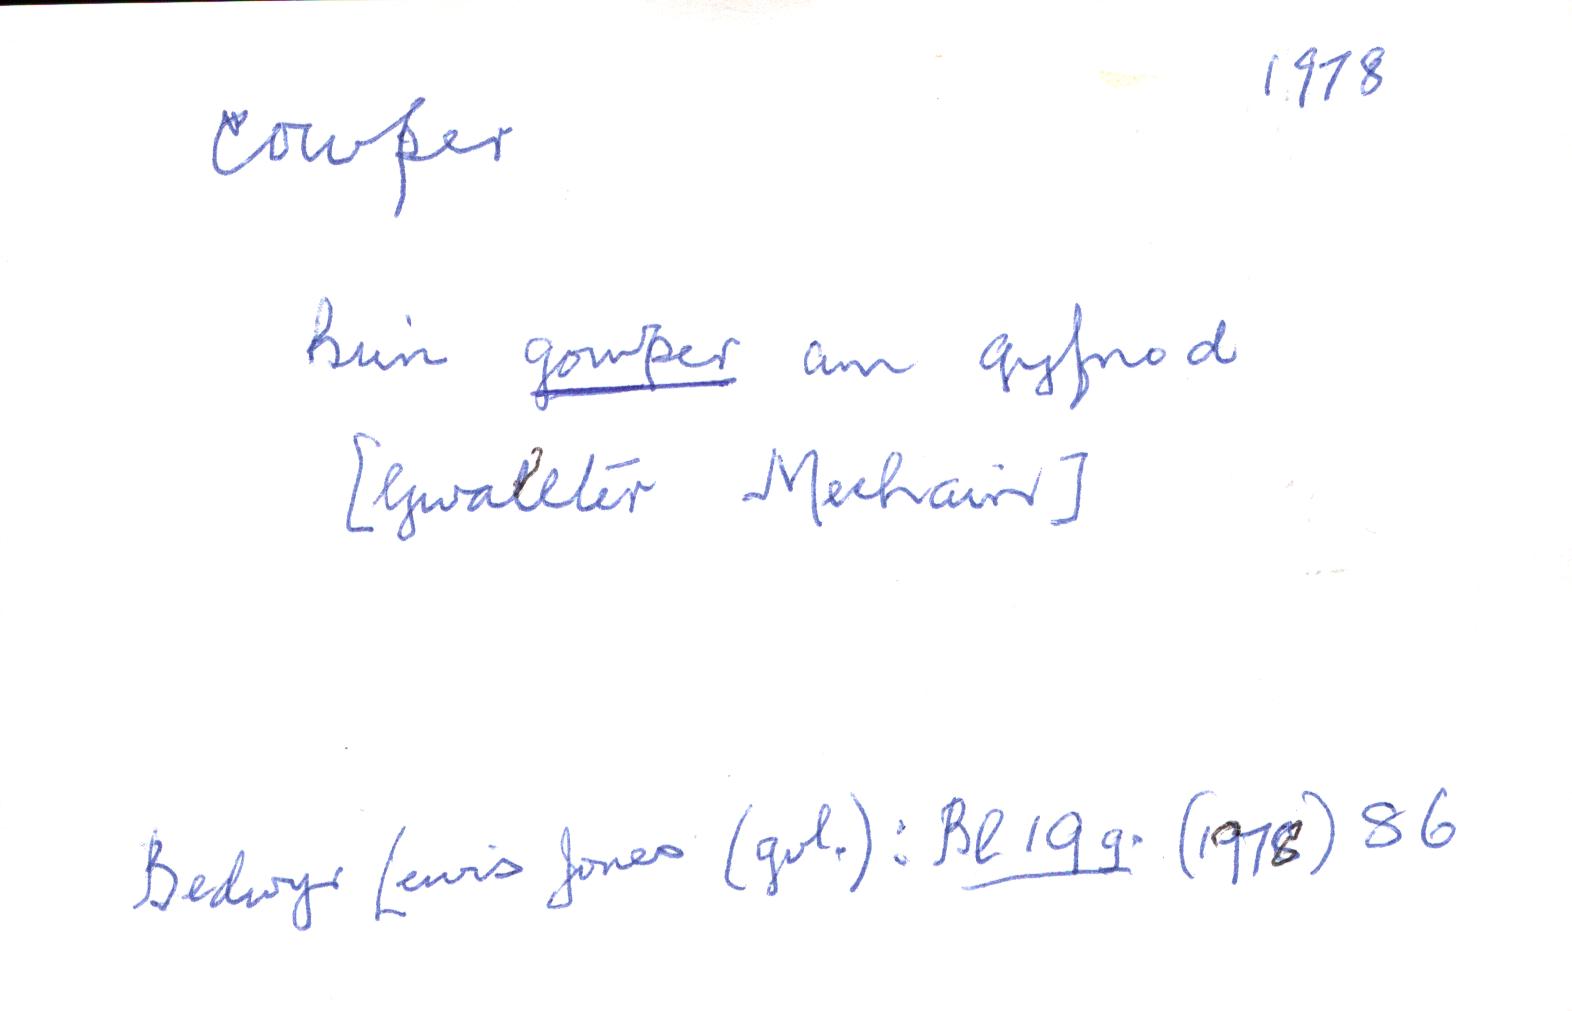 1978
cowper
buin gowper am gyfnod
[Gwallter Mechain]
Bedwyr Lewis Jones (gol.): Bl 19g. (1978) 86